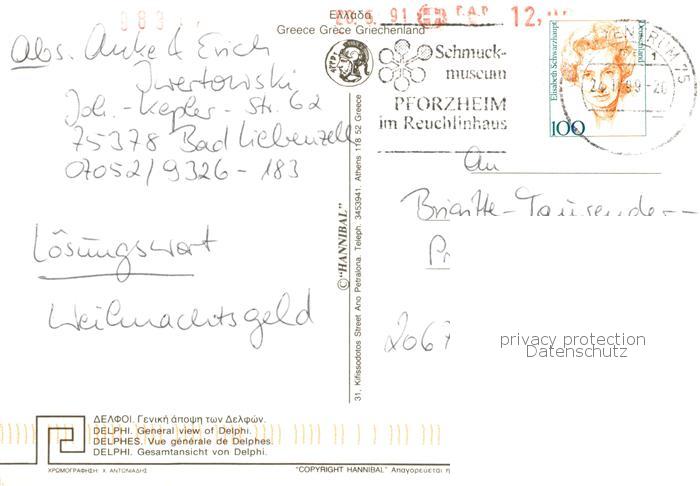 Ελλάδα
Greece Grèce Griechenland
Abs. Anke & Erich
Joh.-Kepler-Str. 62
75378 Bad Liebenzell
07052/9326-183
Lösungswort
Weihnachtsgeld
12,
Schmuck-
museum
PFORZHEIM
im Reuchlinhaus
Elisabeth Schwarzhaupt
Deutschland
100
An
Brigitte-Tausender-
2067
privacy protection
Datenschutz
©"HANNIBAL"
31, Kifissodotos Street Ano Petralona. Teleph: 3453941. Athens 118 52 Greece
ΔΕΛΦΟΙ. Γενική άποψη των Δελφών.
DELPHI. General view of Delphi.
DELPHES. Vue générale de Delphes.
DELPHI. Gesamtansicht von Delphi.
ΧΡΩΜΟΓΡΑΦΗΣΗ: Χ. ΑΝΤΩΝΙΑΔΗΣ
"COPYRIGHT HANNIBAL" Απαγορεύεται η